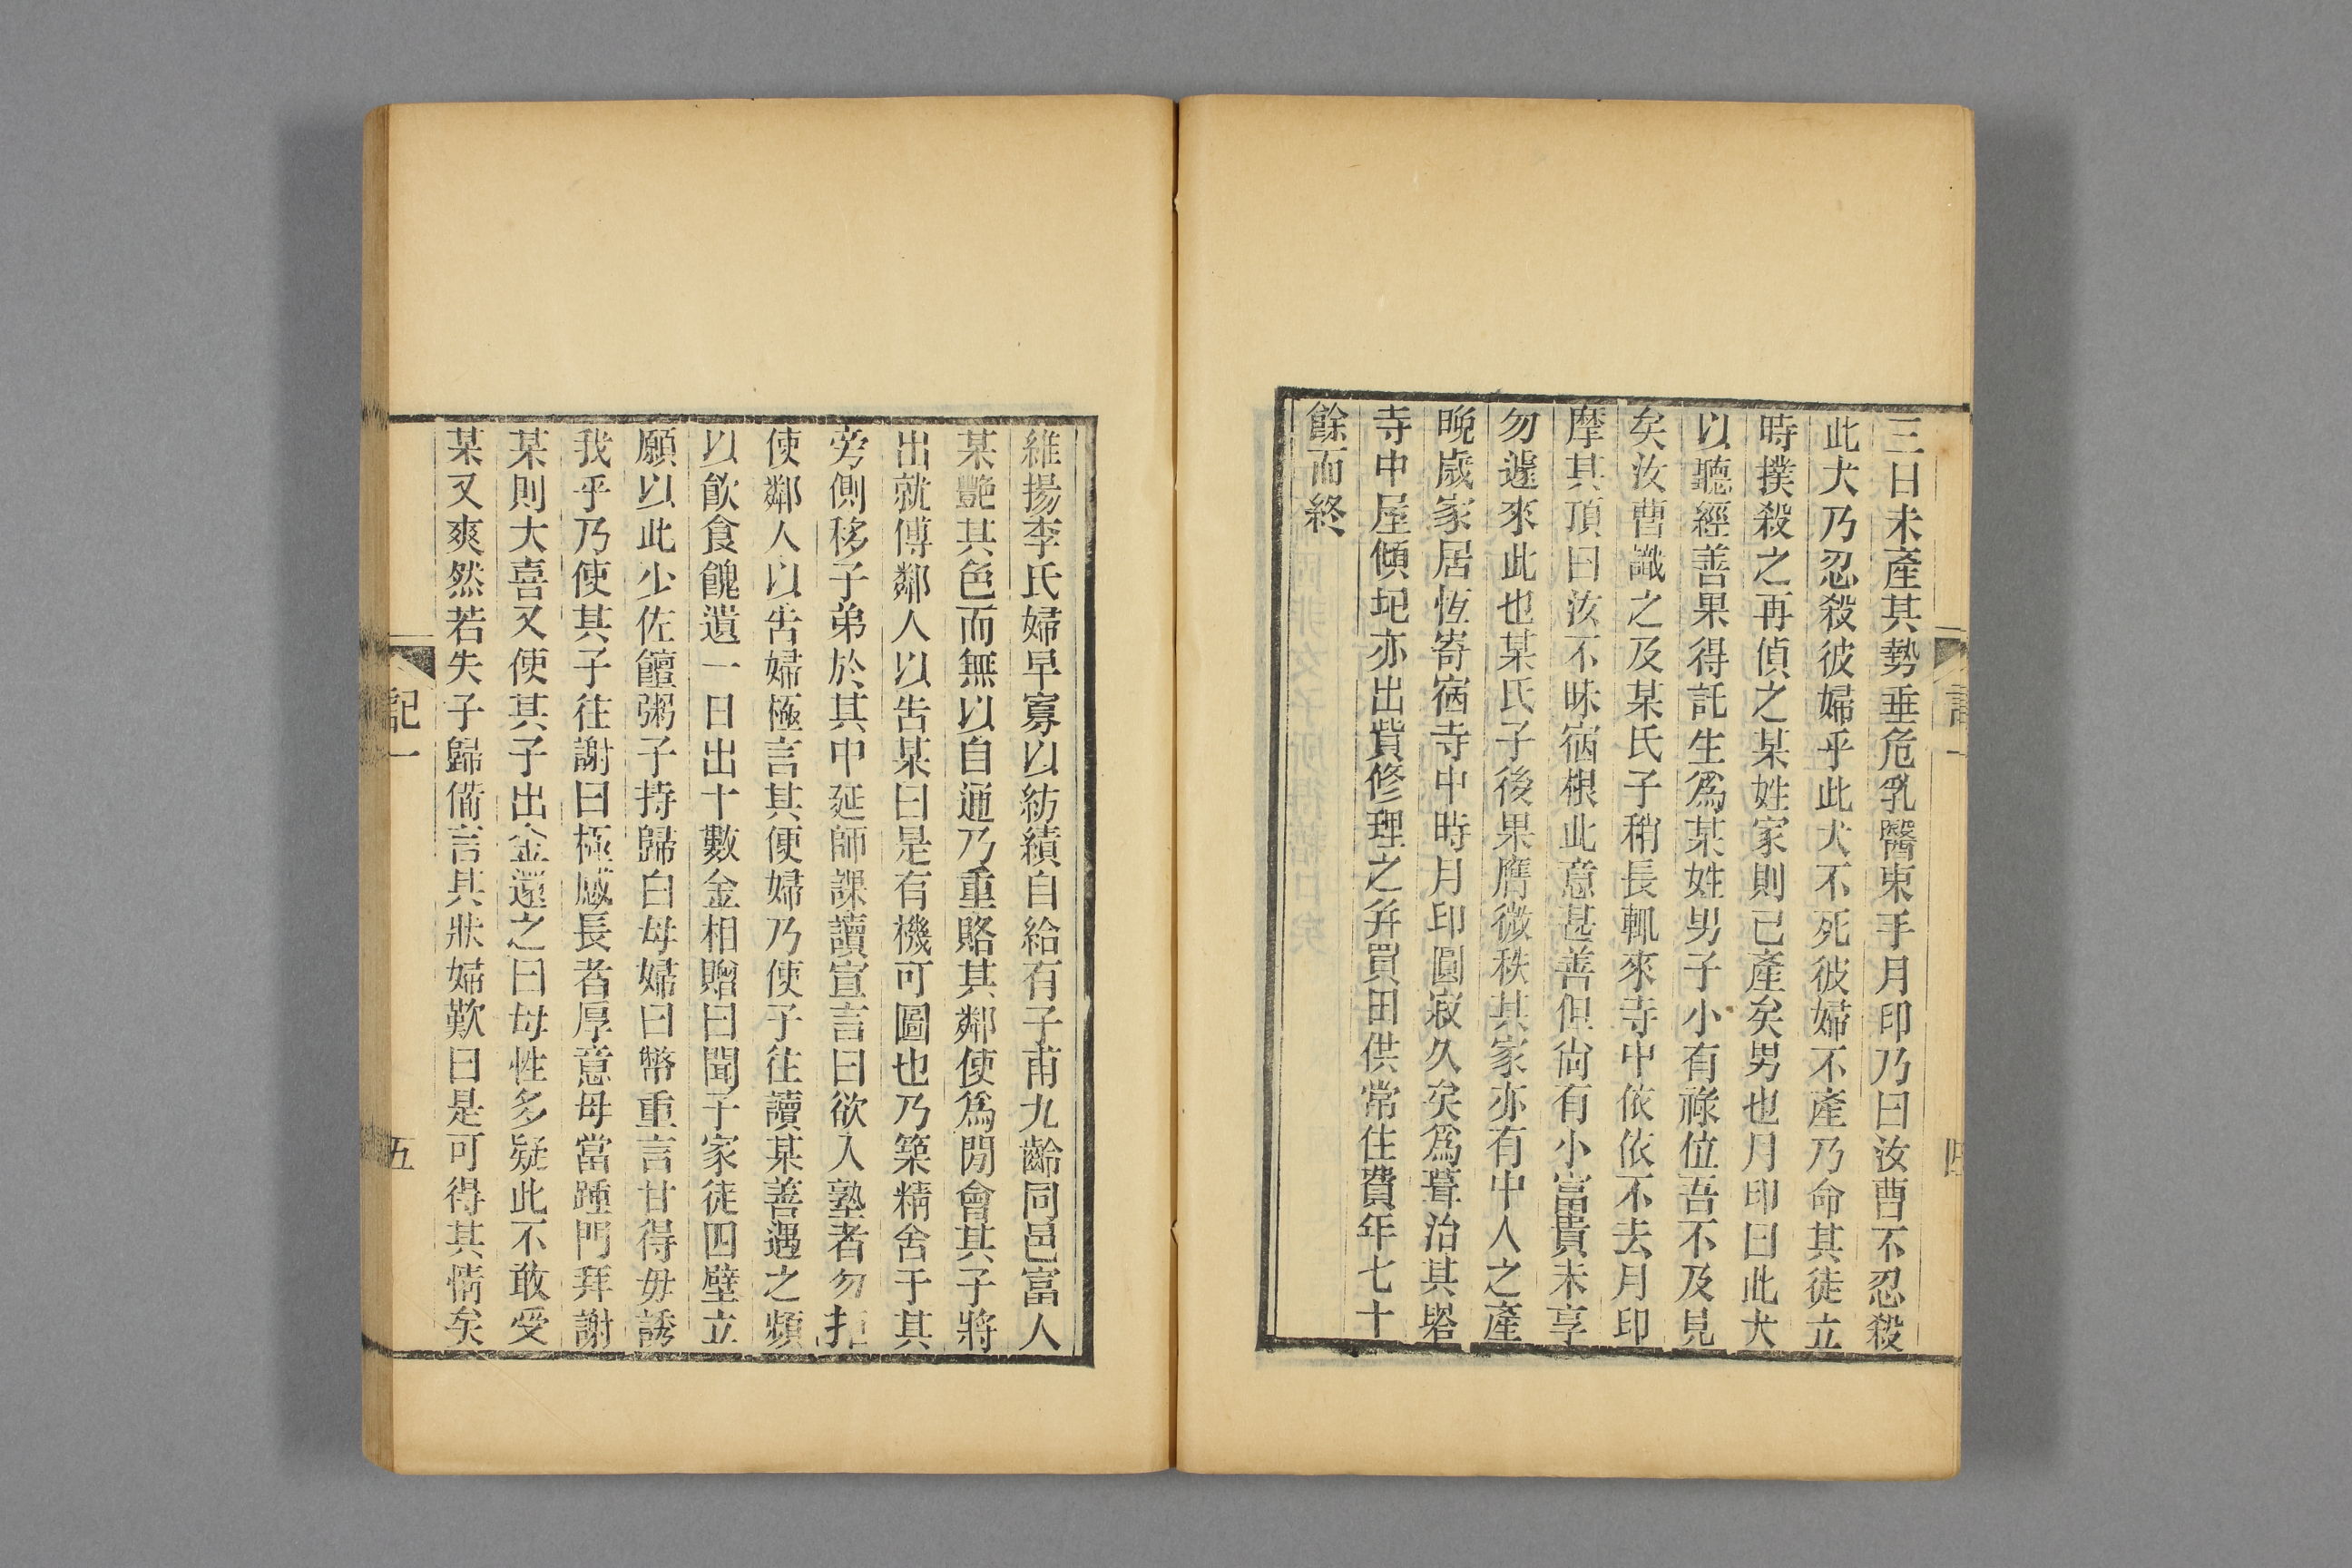 三日未產其勢垂危乳醫束手月印乃曰汝曹不忍殺
此犬乃忍殺彼婦乎此犬不死彼婦不產乃命其徒立
時撲殺之再偵之某姓家則已產矣男也月印曰此犬
以聽經善果得託生爲某姓男子小有祿位吾不及見
矣汝曹識之及某氏子稍長輒來寺中依依不去月印
摩其頂曰汝不昧宿根此意甚善但尙有小富貴未享
勿遽來此也某氏子後果膺微秩其家亦有中人之產
晚歲家居恆寄宿寺中時月印圓寂久矣爲葺治其墖
寺中屋傾圮亦出貲修理之并買田供常住費年七十
餘而終
記一
四
維揚李氏婦早寡以紡績自給有子甫九齡同邑富人
某艷其色而無以自通乃重賂其鄰使爲閒會其子將
出就傅鄰人以告某曰是有機可圖也乃築精舍于其
旁側移子弟於其中延師課讀宣言曰欲入塾者勿拒
使鄰人以告婦極言其便婦乃使子往讀某善遇之頻
以飲食餽遺一日出十數金相贈曰聞子家徒四壁立
願以此少佐饘粥子持歸白母婦曰幣重言甘得毋誘
我乎乃使其子往謝曰極感長者厚意母當踵門拜謝
某則大喜又使其子出金還之曰母性多疑此不敢受
某又爽然若失子歸備言其狀婦歎曰是可得其情矣
記一
五